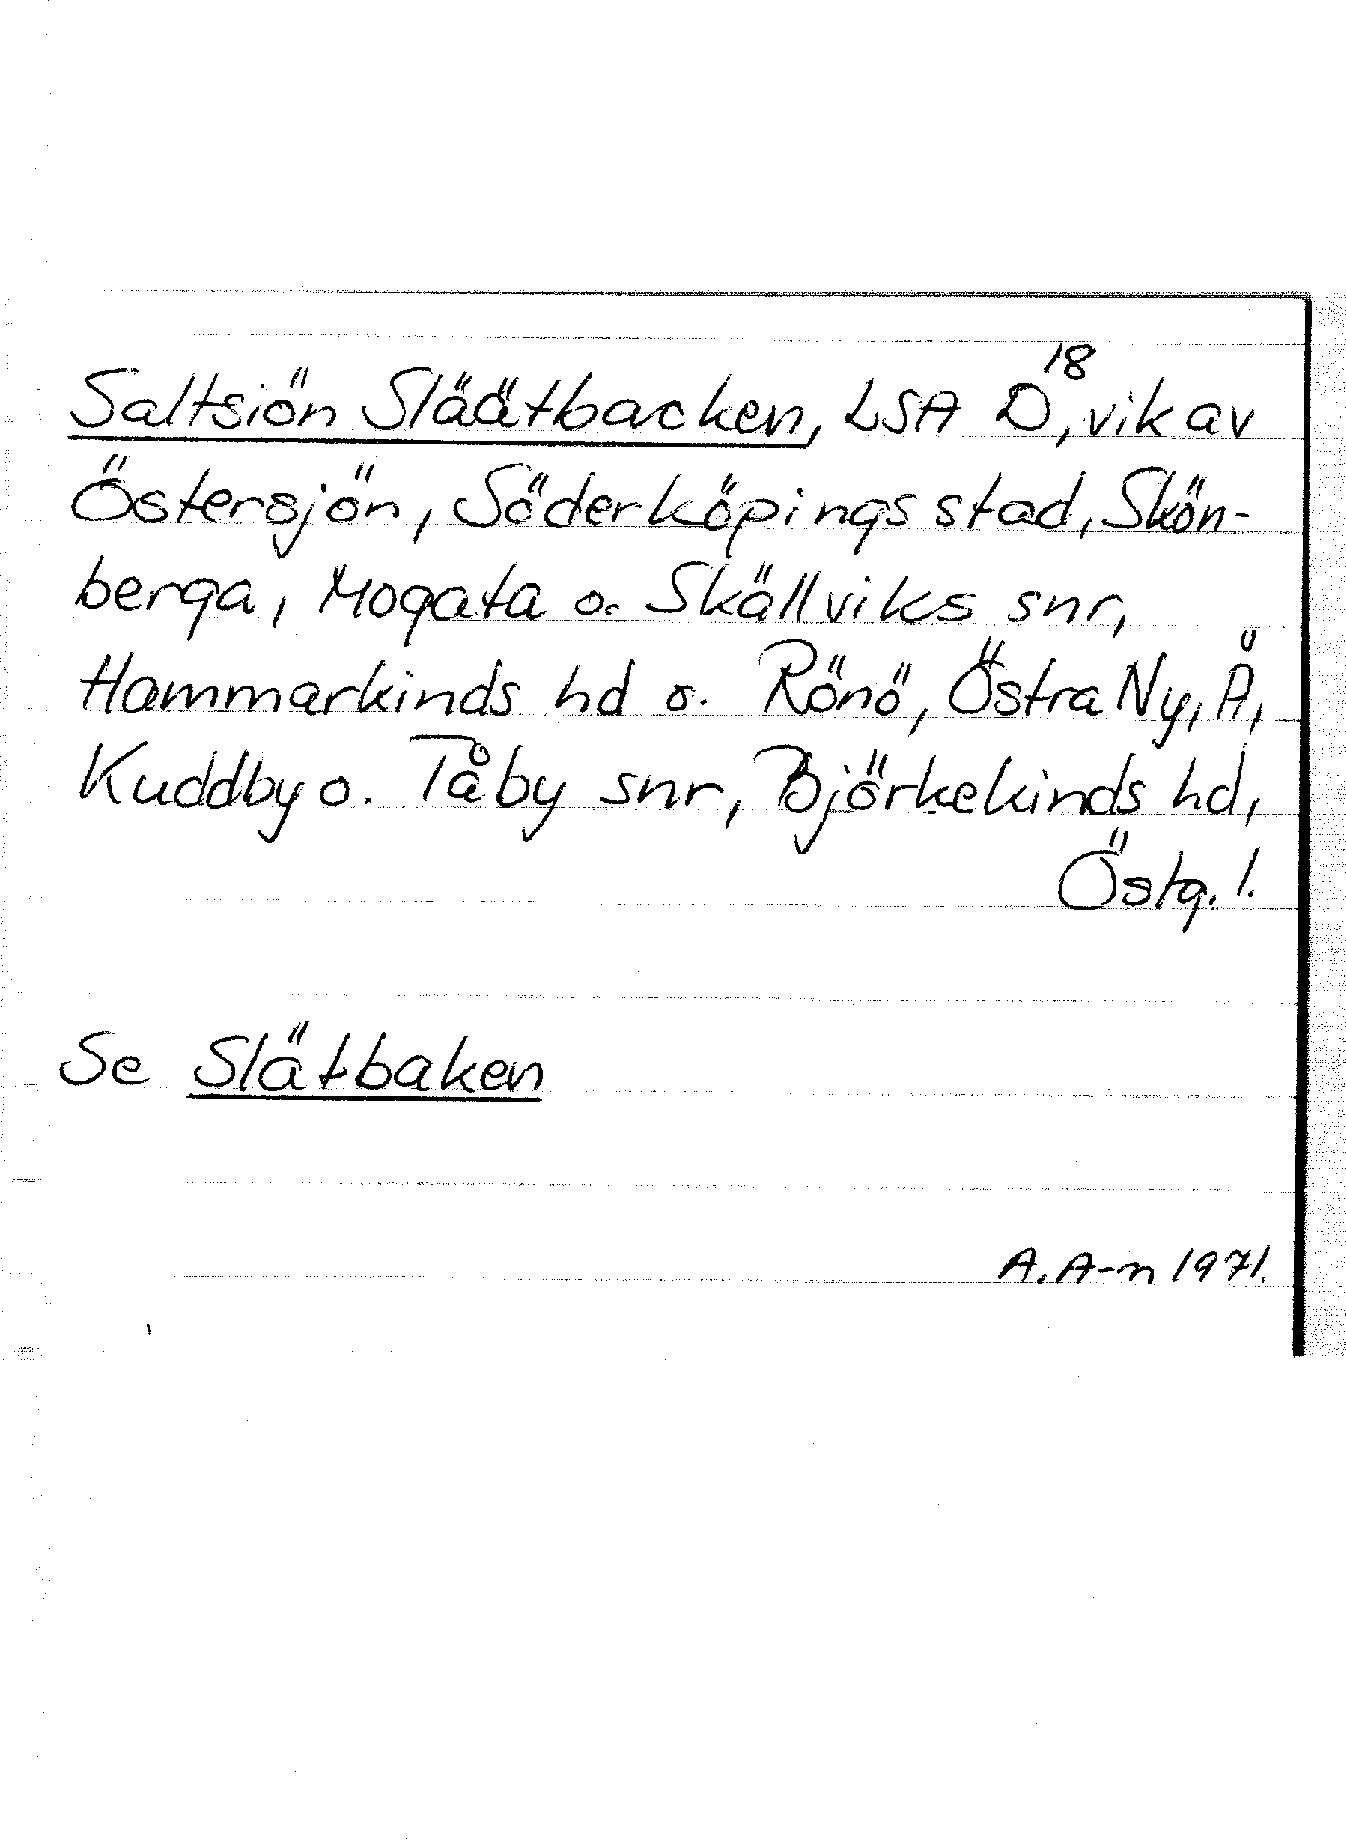 Saltsiön Släätbacken, LSA D18, vik av
Östersjön, Söderköpings stad, Skön-
berga, Mogata o. Skällviks snr,
Hammarkinds hd o. Rönö, Östra Ny, Å,
Kuddby o. Tåby snr, Björkekinds hd,
Östg. l.
Se Slätbaken
A. A-n 1971.